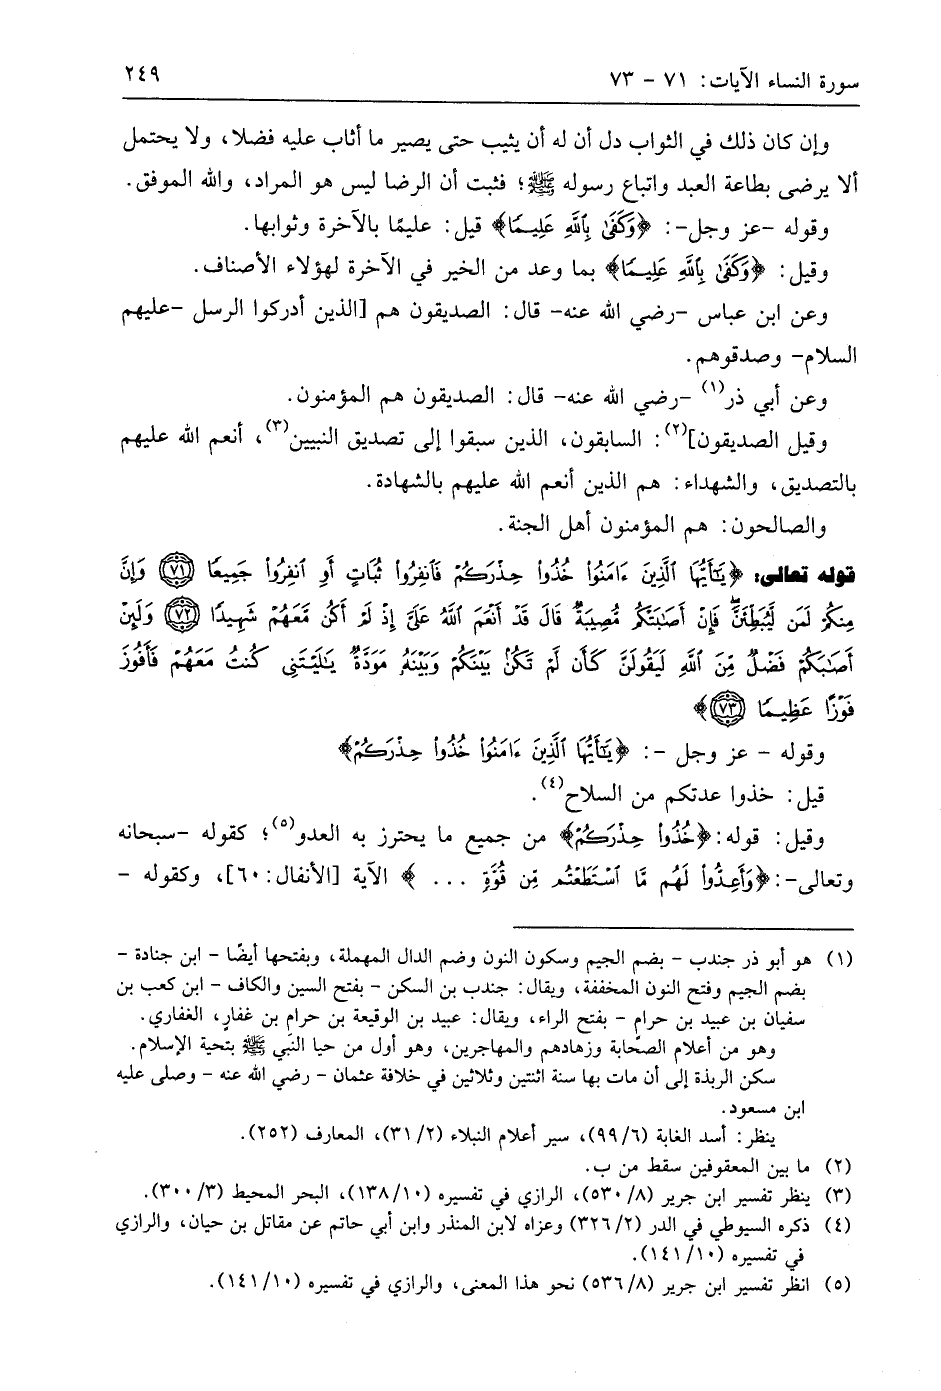 سورة النساء الآيات: ٧١ - ٧٣
٢٤٩
وإن كان ذلك في الثواب دل أن له أن يثيب حتى يصير ما أثاب عليه فضلا، ولا يحتمل
ألا يرضى بطاعة العبد واتباع رسوله ﷺ؛ فثبت أن الرضا ليس هو المراد، والله الموفق.
وقوله -عز وجل-: ﴿وَكَفَىٰ بِٱللَّهِ عَلِيمًا﴾ قيل: عليمًا بالآخرة وثوابها.
وقيل: ﴿وَكَفَىٰ بِٱللَّهِ عَلِيمًا﴾ بما وعد من الخير في الآخرة لهؤلاء الأصناف.
وعن ابن عباس -رضي الله عنه- قال: الصديقون هم [الذين أدركوا الرسل -عليهم
السلام- وصدقوهم.
وعن أبي ذر(١) -رضي الله عنه- قال: الصديقون هم المؤمنون.
وقيل الصديقون](٢): السابقون، الذين سبقوا إلى تصديق النبيين(٣)، أنعم الله عليهم
بالتصديق، والشهداء: هم الذين أنعم الله عليهم بالشهادة.
والصالحون: هم المؤمنون أهل الجنة.
قوله تعالى: ﴿يَٰٓأَيُّهَا ٱلَّذِينَ ءَامَنُوا۟ خُذُوا۟ حِذْرَكُمْ فَٱنفِرُوا۟ ثُبَاتٍ أَوِ ٱنفِرُوا۟ جَمِيعًا ٧١ وَإِنَّ
مِنكُمْ لَمَن لَّيُبَطِّئَنَّ ۖ فَإِنْ أَصَٰبَتْكُم مُّصِيبَةٌ قَالَ قَدْ أَنْعَمَ ٱللَّهُ عَلَىَّ إِذْ لَمْ أَكُن مَّعَهُمْ شَهِيدًا ٧٢ وَلَئِنْ
أَصَٰبَكُمْ فَضْلٌ مِّنَ ٱللَّهِ لَيَقُولَنَّ كَأَن لَّمْ تَكُنۢ بَيْنَكُمْ وَبَيْنَهُۥ مَوَدَّةٌ يَٰلَيْتَنِى كُنتُ مَعَهُمْ فَأَفُوزَ
فَوْزًا عَظِيمًا ٧٣﴾
وقوله - عز وجل -: ﴿يَٰٓأَيُّهَا ٱلَّذِينَ ءَامَنُوا۟ خُذُوا۟ حِذْرَكُمْ﴾
قيل: خذوا عدتكم من السلاح(٤).
وقيل: قوله: ﴿خُذُوا۟ حِذْرَكُمْ﴾ من جميع ما يحترز به العدو(٥)؛ كقوله -سبحانه
وتعالى-: ﴿وَأَعِدُّوا۟ لَهُم مَّا ٱسْتَطَعْتُم مِّن قُوَّةٍ ... ﴾ الآية [الأنفال: ٦٠]، وكقوله -
(١) هو أبو ذر جندب - بضم الجيم وسكون النون وضم الدال المهملة، وبفتحها أيضًا - ابن جنادة -
بضم الجيم وفتح النون المخففة، ويقال: جندب بن السكن - بفتح السين والكاف - ابن كعب بن
سفيان بن عبيد بن حرام - بفتح الراء، ويقال: عبيد بن الوقيعة بن حرام بن غفار، الغفاري.
وهو من أعلام الصّحابة وزهادهم والمهاجرين، وهو أول من حيا النَّبي ﷺ بتحية الإسلام.
سكن الربذة إلى أن مات بها سنة اثنتين وثلاثين في خلافة عثمان - رضي الله عنه - وصلى عليه
ابن مسعود.
ينظر: أسد الغابة (٩٩/٦)، سير أعلام النبلاء (٣١/٢)، المعارف (٢٥٢).
(٢) ما بين المعقوفين سقط من ب.
(٣) ينظر تفسير ابن جرير (٥٣٠/٨)، الرازي في تفسيره (١٣٨/١٠)، البحر المحيط (٣٠٠/٣).
(٤) ذكره السيوطي في الدر (٣٢٦/٢) وعزاه لابن المنذر وابن أبي حاتم عن مقاتل بن حيان، والرازي
في تفسيره (١٤١/١٠).
(٥) انظر تفسير ابن جرير (٥٣٦/٨) نحو هذا المعنى، والرازي في تفسيره (١٤١/١٠).